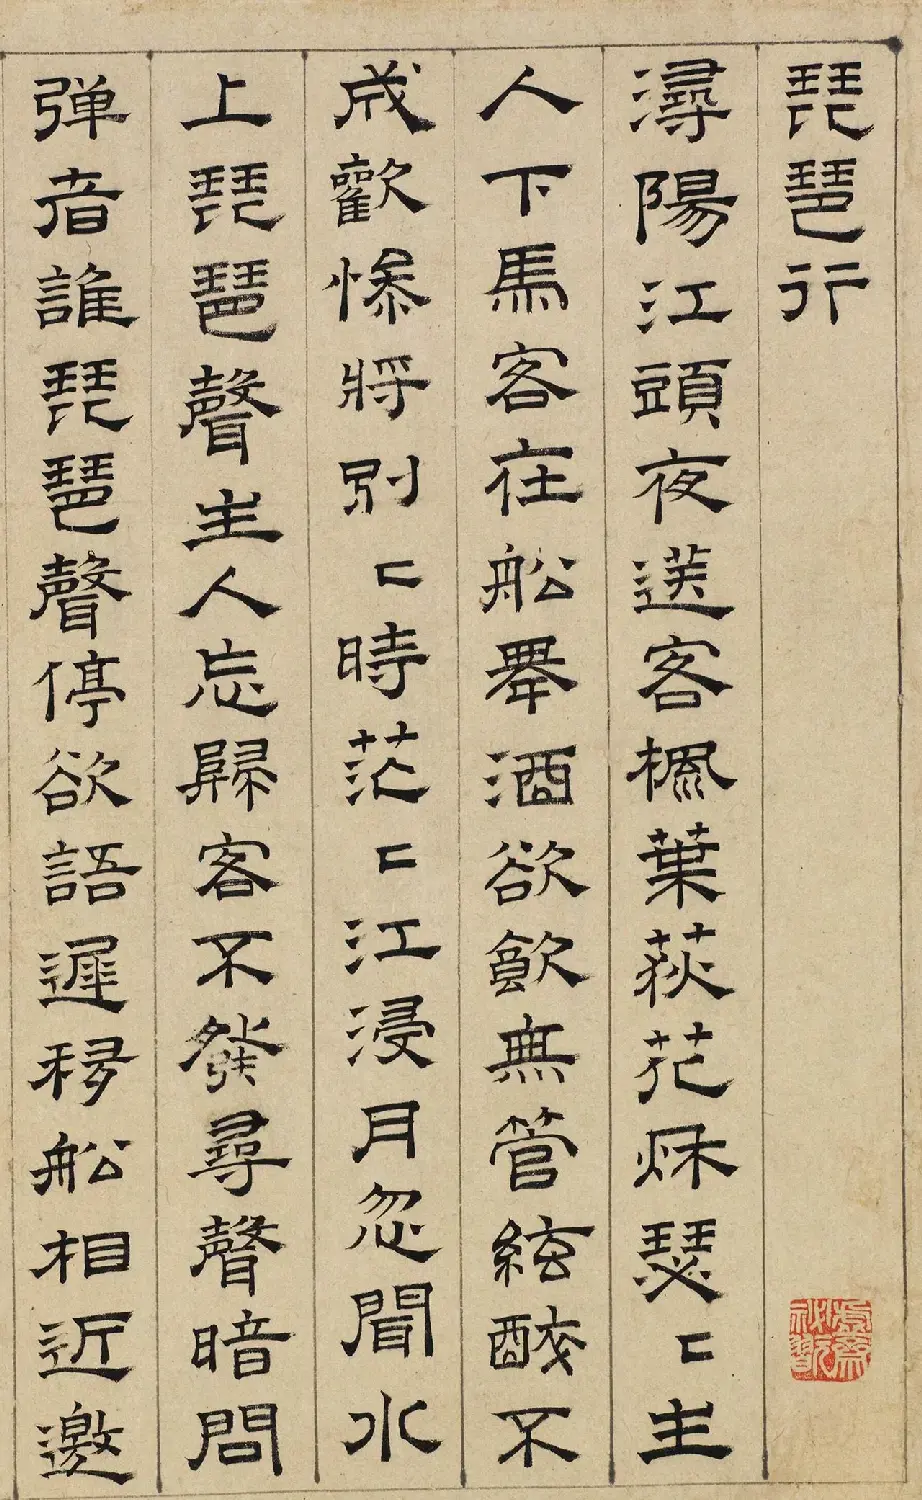 琵琶行
潯陽江頭夜送客楓葉荻花秌瑟〻主
人下馬客在船舉酒欲飲無管絃醉不
成歡慘將別〻時茫〻江浸月忽聞水
上琵琶聲主人忘歸客不發尋聲暗問
彈音誰琵琶聲停欲語遲移船相近邀